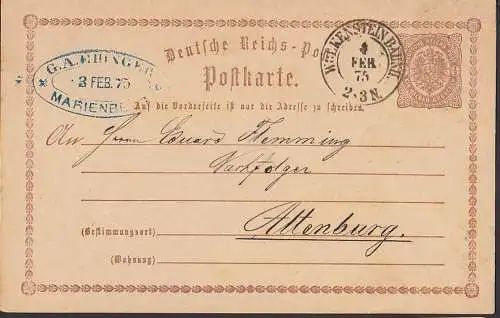 Deutsche Reichs-Post
Postkarte.
G.A.EHINGER
3 FEB. 75
MARIENBERG
WOLKENSTEIN BAHNH.
4
FEB.
75
2-3N.
Auf die Vorderseite ist nur die Adresse zu schreiben.
An Herrn Eduard Flemming
Nachfolger
Altenburg.
(Bestimmungsort)
(Wohnung)